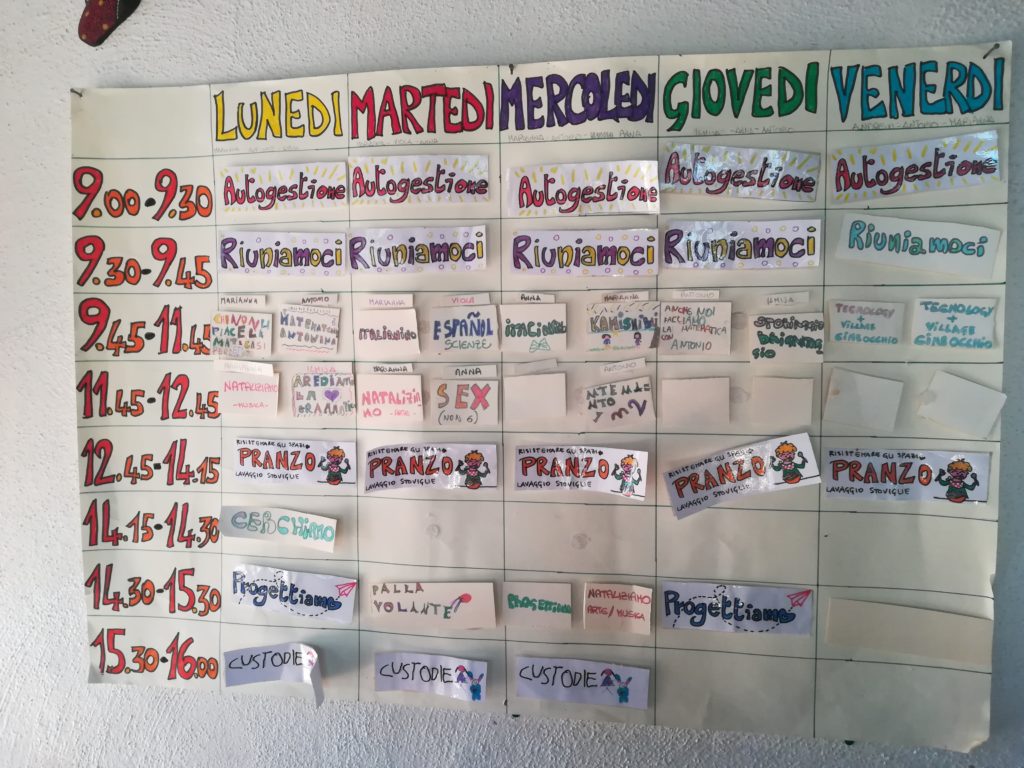 LUNEDI MARTEDI MERCOLEDI GIOVEDI VENERDI
9.00-9.30 Autogestione Autogestione Autogestione Autogestione Autogestione
9.30-9.45 Riuniamoci Riuniamoci Riuniamoci Riuniamoci Riuniamoci
MARIANNA ANTONIO MARIANNA VIOLA ANNA MARIANNA ANTONIO
9.45-11.45
MATEMATICA
ANTONINA
ITALIANINO
ESPAÑOL
SCIENZE
KAMISHIBAI
ANCHE NOI
FACCIAMO
LA MATEMATICA
CON
ANTONIO
TECNOLOGY
VILLAGE
GINROCCHIO
TECNOLOGY
VILLAGE
GINROCCHIO
MARIANNA ANNA ANTONIO
11.45-12.45
NATALIZIAMO
-MUSICA-
LA
GRAMMATICA
NATALIZIA
MO -ARTE-
SEX
(NON 6)
12.45-14.15
RISISTEMARE GLI SPAZI
PRANZO
LAVAGGIO STOVIGLIE
RISISTEMARE GLI SPAZI
PRANZO
LAVAGGIO STOVIGLIE
RISISTEMARE GLI SPAZI
PRANZO
LAVAGGIO STOVIGLIE
RISISTEMARE GLI SPAZI
PRANZO
LAVAGGIO STOVIGLIE
RISISTEMARE GLI SPAZI
PRANZO
LAVAGGIO STOVIGLIE
14.15-14.30 CERCHIAMO
14.30-15.30 Progettiamo
PALLA
VOLANTE
NATALIZIAMO
ARTE/MUSICA
Progettiamo
15.30-16.00 CUSTODIE CUSTODIE CUSTODIE